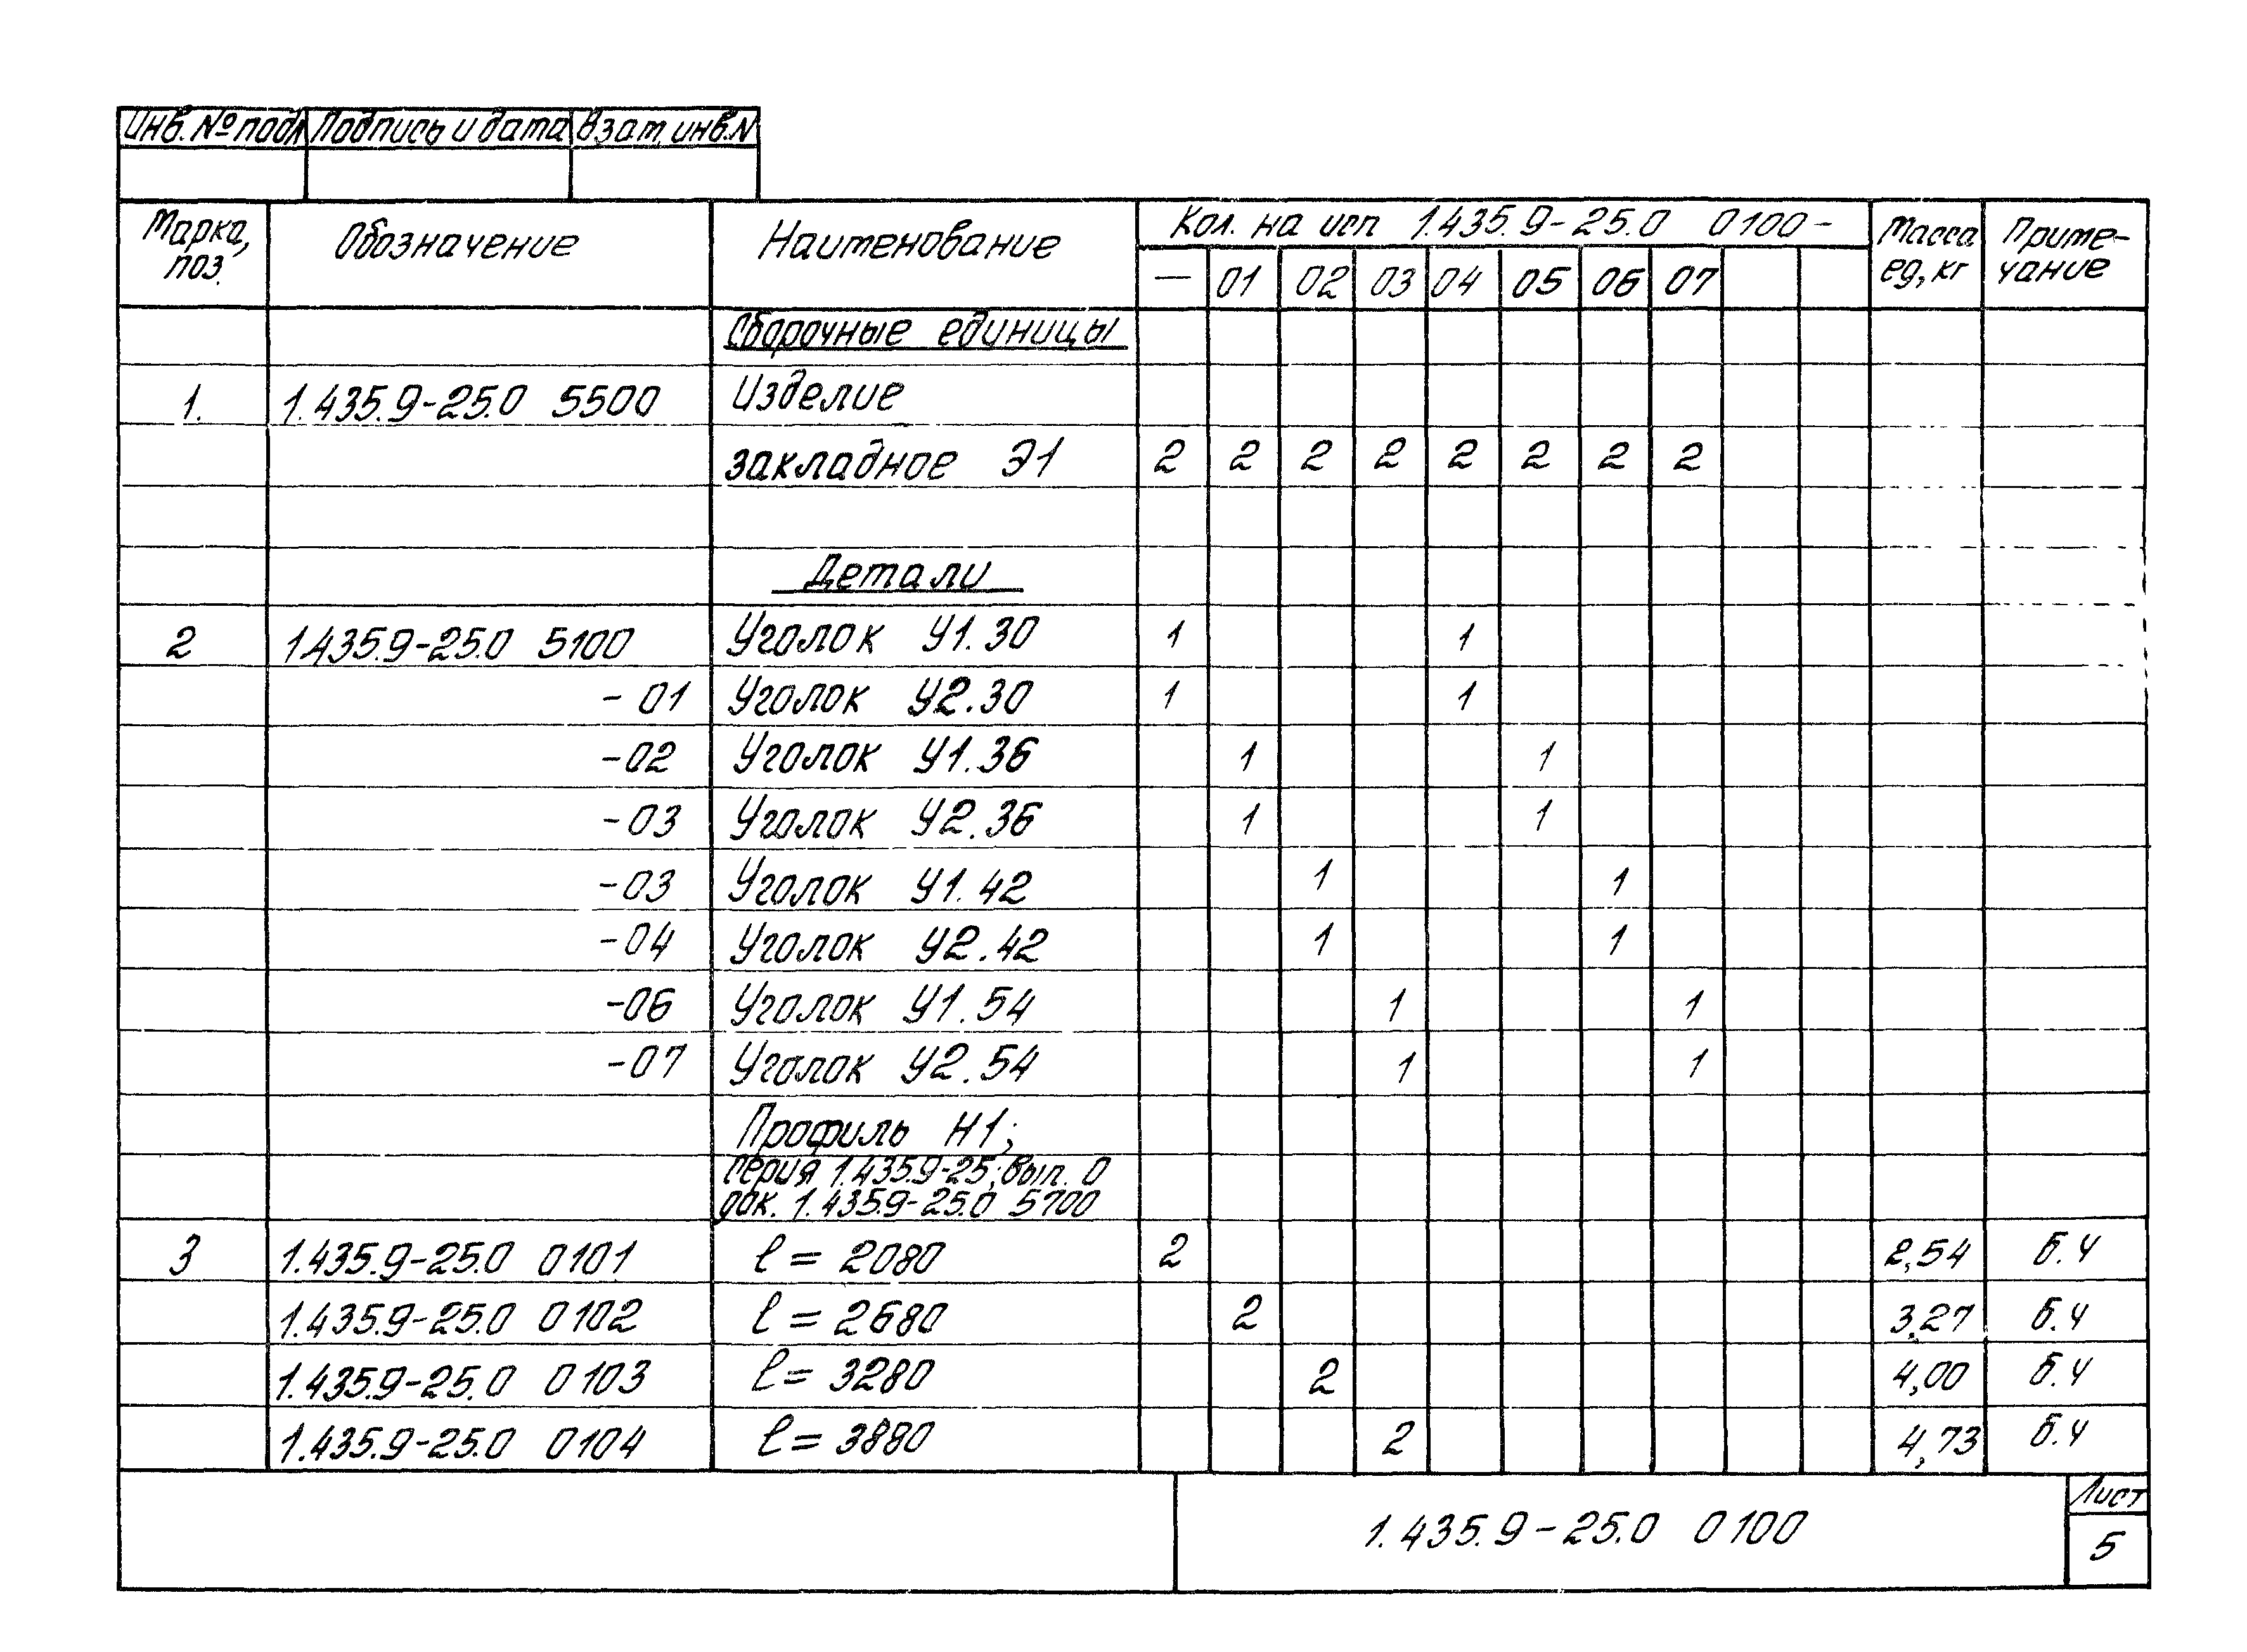 Инв. № подл Подпись и дата Взам. инв. N
Марка, поз. Обозначение Наименование Кол. на исп 1.435.9-25.0 0100- Масса ед, кг Приме-чание
— 01 02 03 04 05 06 07
Сборочные единицы
1. 1.435.9-25.0 5500 Изделие
закладное Э1 2 2 2 2 2 2 2 2
Детали
2 1.435.9-25.0 5100 Уголок У1.30 1 1
- 01 Уголок У2.30 1 1
-02 Уголок У1.36 1 1
-03 Уголок У2.36 1 1
-03 Уголок У1.42 1 1
-04 Уголок У2.42 1 1
-06 Уголок У1.54 1 1
-07 Уголок У2.54 1 1
Профиль Н1;
серия 1.435.9-25; вып. 0
док. 1.435.9-25.0 5700
3 1.435.9-25.0 0101 ℓ = 2080 2 2,54 б.ч
1.435.9-25.0 0102 ℓ = 2680 2 3,27 б.ч
1.435.9-25.0 0103 ℓ = 3280 2 4,00 б.ч
1.435.9-25.0 0104 ℓ = 3880 2 4,73 б.ч
1.435.9-25.0 0100
Лист
5